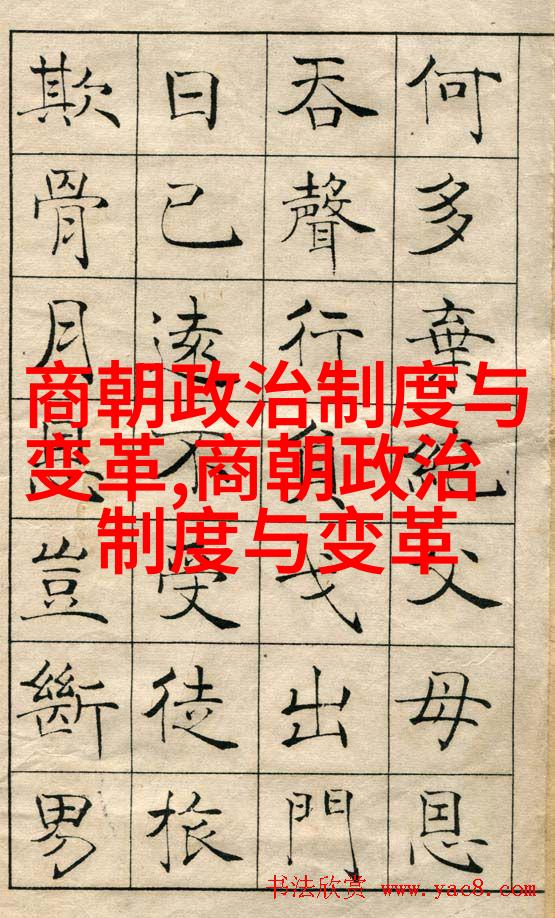 何多棄絶父母恩
吞聲行負戈出門
日已遠不受徒旅
欺骨月恩豈斷男
商朝政治制度与
变革,商朝政治
制度与变革
书法欣赏 www.yac8.com